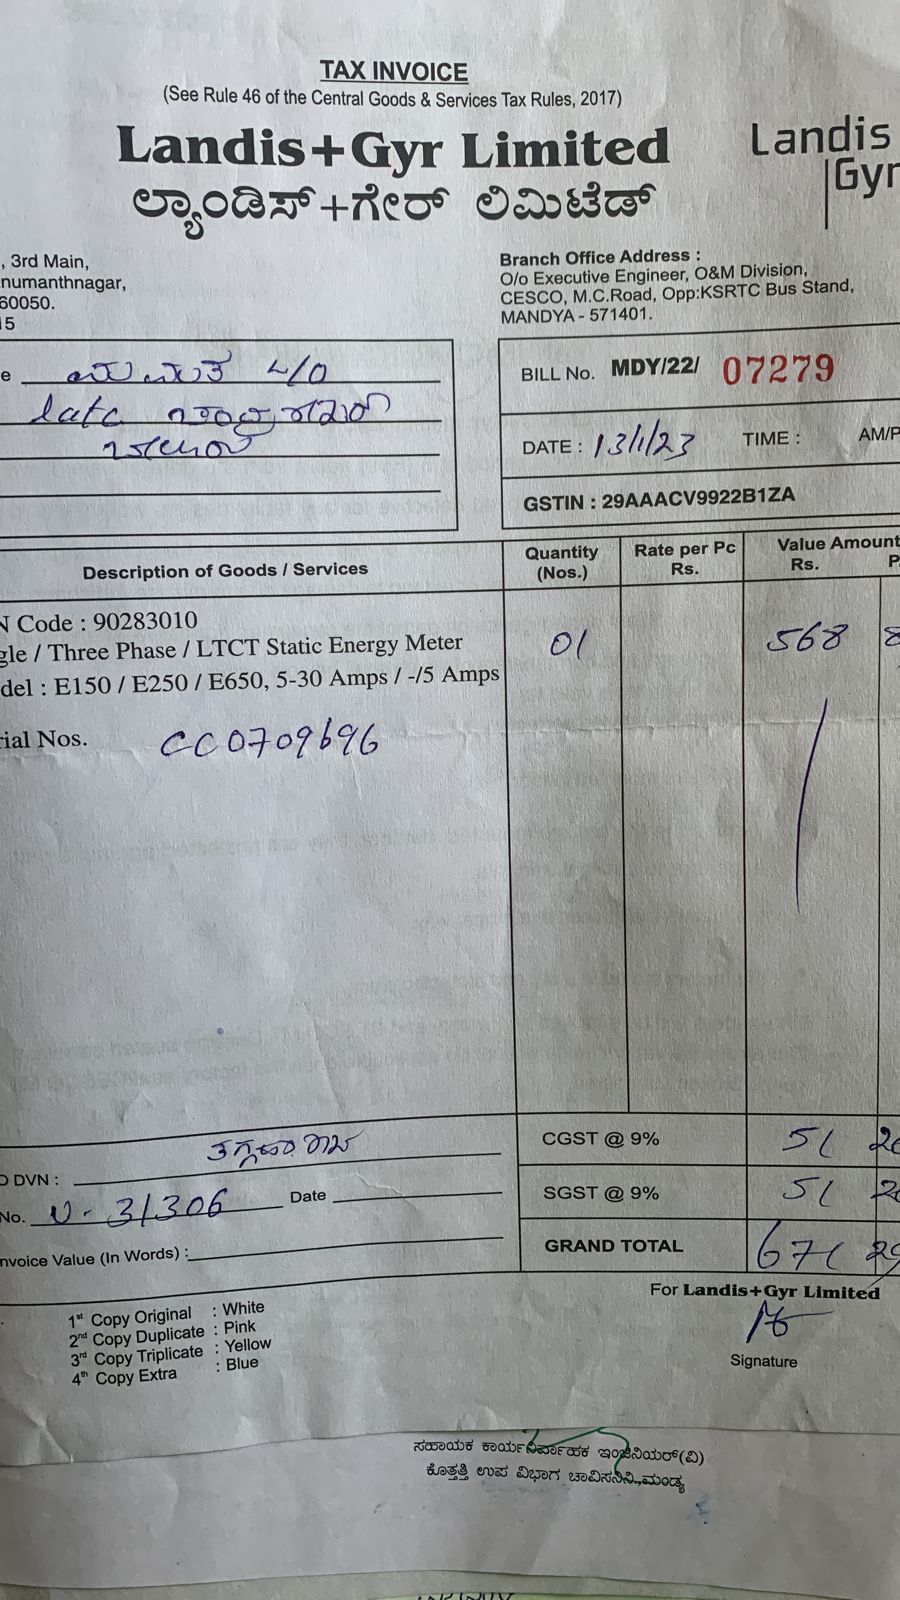 TAX INVOICE
(See Rule 46 of the Central Goods & Services Tax Rules, 2017)
Landis+Gyr Limited
ಲ್ಯಾಂಡಿಸ್+ಗೇರ್ ಲಿಮಿಟೆಡ್
Landis
Gyr
, 3rd Main,
numanthnagar,
60050.
15
Branch Office Address :
O/o Executive Engineer, O&M Division,
CESCO, M.C.Road, Opp:KSRTC Bus Stand,
MANDYA - 571401.
e
late
BILL No. MDY/22/ 07279
DATE : 13/1/23 TIME : AM/P
GSTIN : 29AAACV9922B1ZA
Description of Goods / Services
Quantity (Nos.)
Rate per Pc Rs.
Value Amount
Rs. P
N Code : 90283010
gle / Three Phase / LTCT Static Energy Meter
del : E150 / E250 / E650, 5-30 Amps / -/5 Amps
01 568 8
rial Nos. CC0709696
CGST @ 9% 51
SGST @ 9% 51
GRAND TOTAL 671 29
O DVN :
No. 31306 Date
nvoice Value (In Words) :
For Landis+Gyr Limited
Signature
1st Copy Original : White
2nd Copy Duplicate : Pink
3rd Copy Triplicate : Yellow
4th Copy Extra : Blue
ಸಹಾಯಕ ಕಾರ್ಯನಿರ್ವಾಹಕ ಇಂಜಿನಿಯರ್(ವಿ)
ಕೊತ್ತತ್ತಿ ಉಪ ವಿಭಾಗ ಚಾವಿಸನಿನಿ.,ಮಂಡ್ಯ